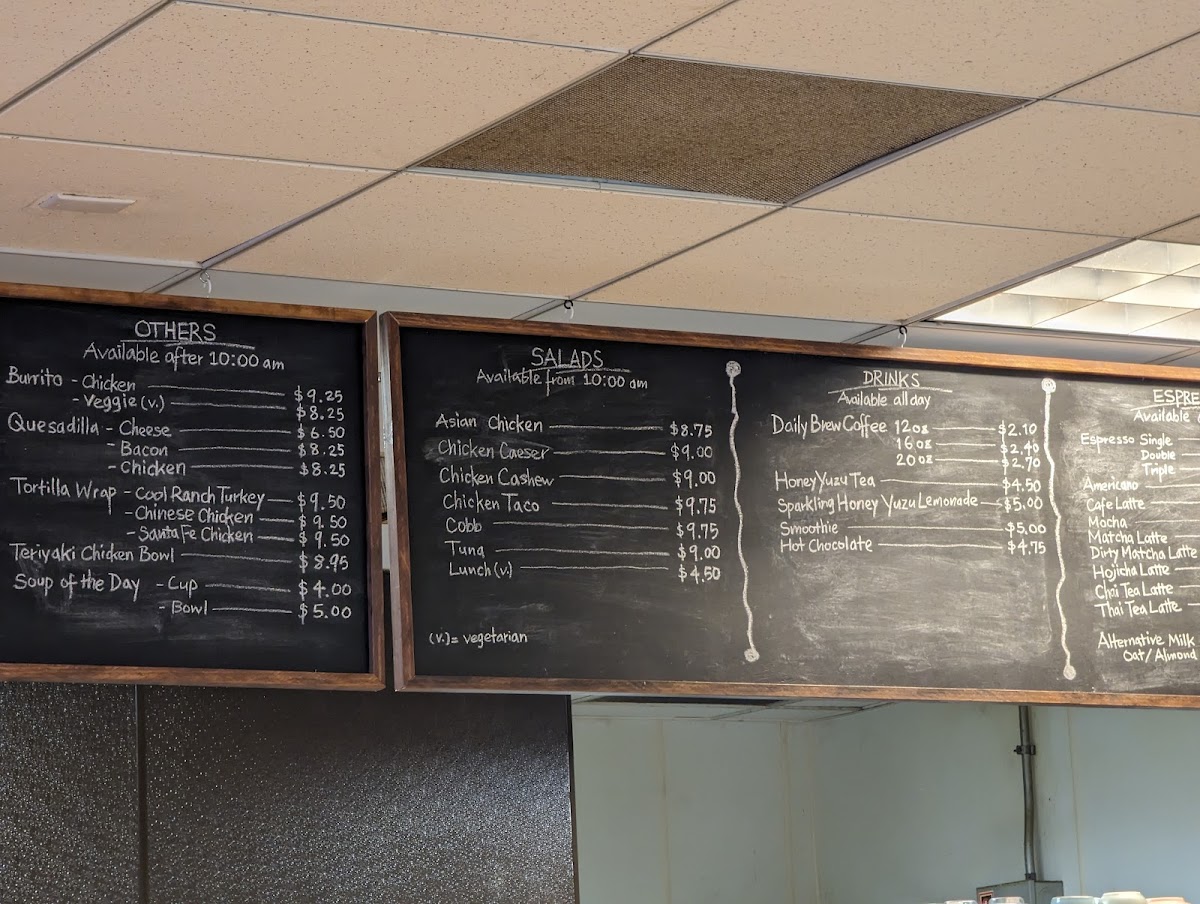 OTHERS
Available after 10:00 am
Burrito - Chicken $9.25
- Veggie (v.) $8.25
Quesadilla - Cheese $6.50
- Bacon $8.25
- Chicken $8.25
Tortilla Wrap - Cool Ranch Turkey $9.50
- Chinese Chicken $9.50
- Santa Fe Chicken $9.50
Teriyaki Chicken Bowl $8.95
Soup of the Day - Cup $4.00
- Bowl $5.00
SALADS
Available from 10:00 am
Asian Chicken $8.75
Chicken Caeser $9.00
Chicken Cashew $9.00
Chicken Taco $9.75
Cobb $9.75
Tuna $9.00
Lunch (v.) $4.50
(v.) = vegetarian
DRINKS
Available all day
Daily Brew Coffee 12oz $2.10
16oz $2.40
20oz $2.70
Honey Yuzu Tea $4.50
Sparkling Honey Yuzu Lemonade $5.00
Smoothie $5.00
Hot Chocolate $4.75
ESPRE
Available
Espresso Single
Double
Triple
Americano
Cafe Latte
Mocha
Matcha Latte
Dirty Matcha Latte
Hojicha Latte
Chai Tea Latte
Thai Tea Latte
Alternative Milk
Oat/Almond